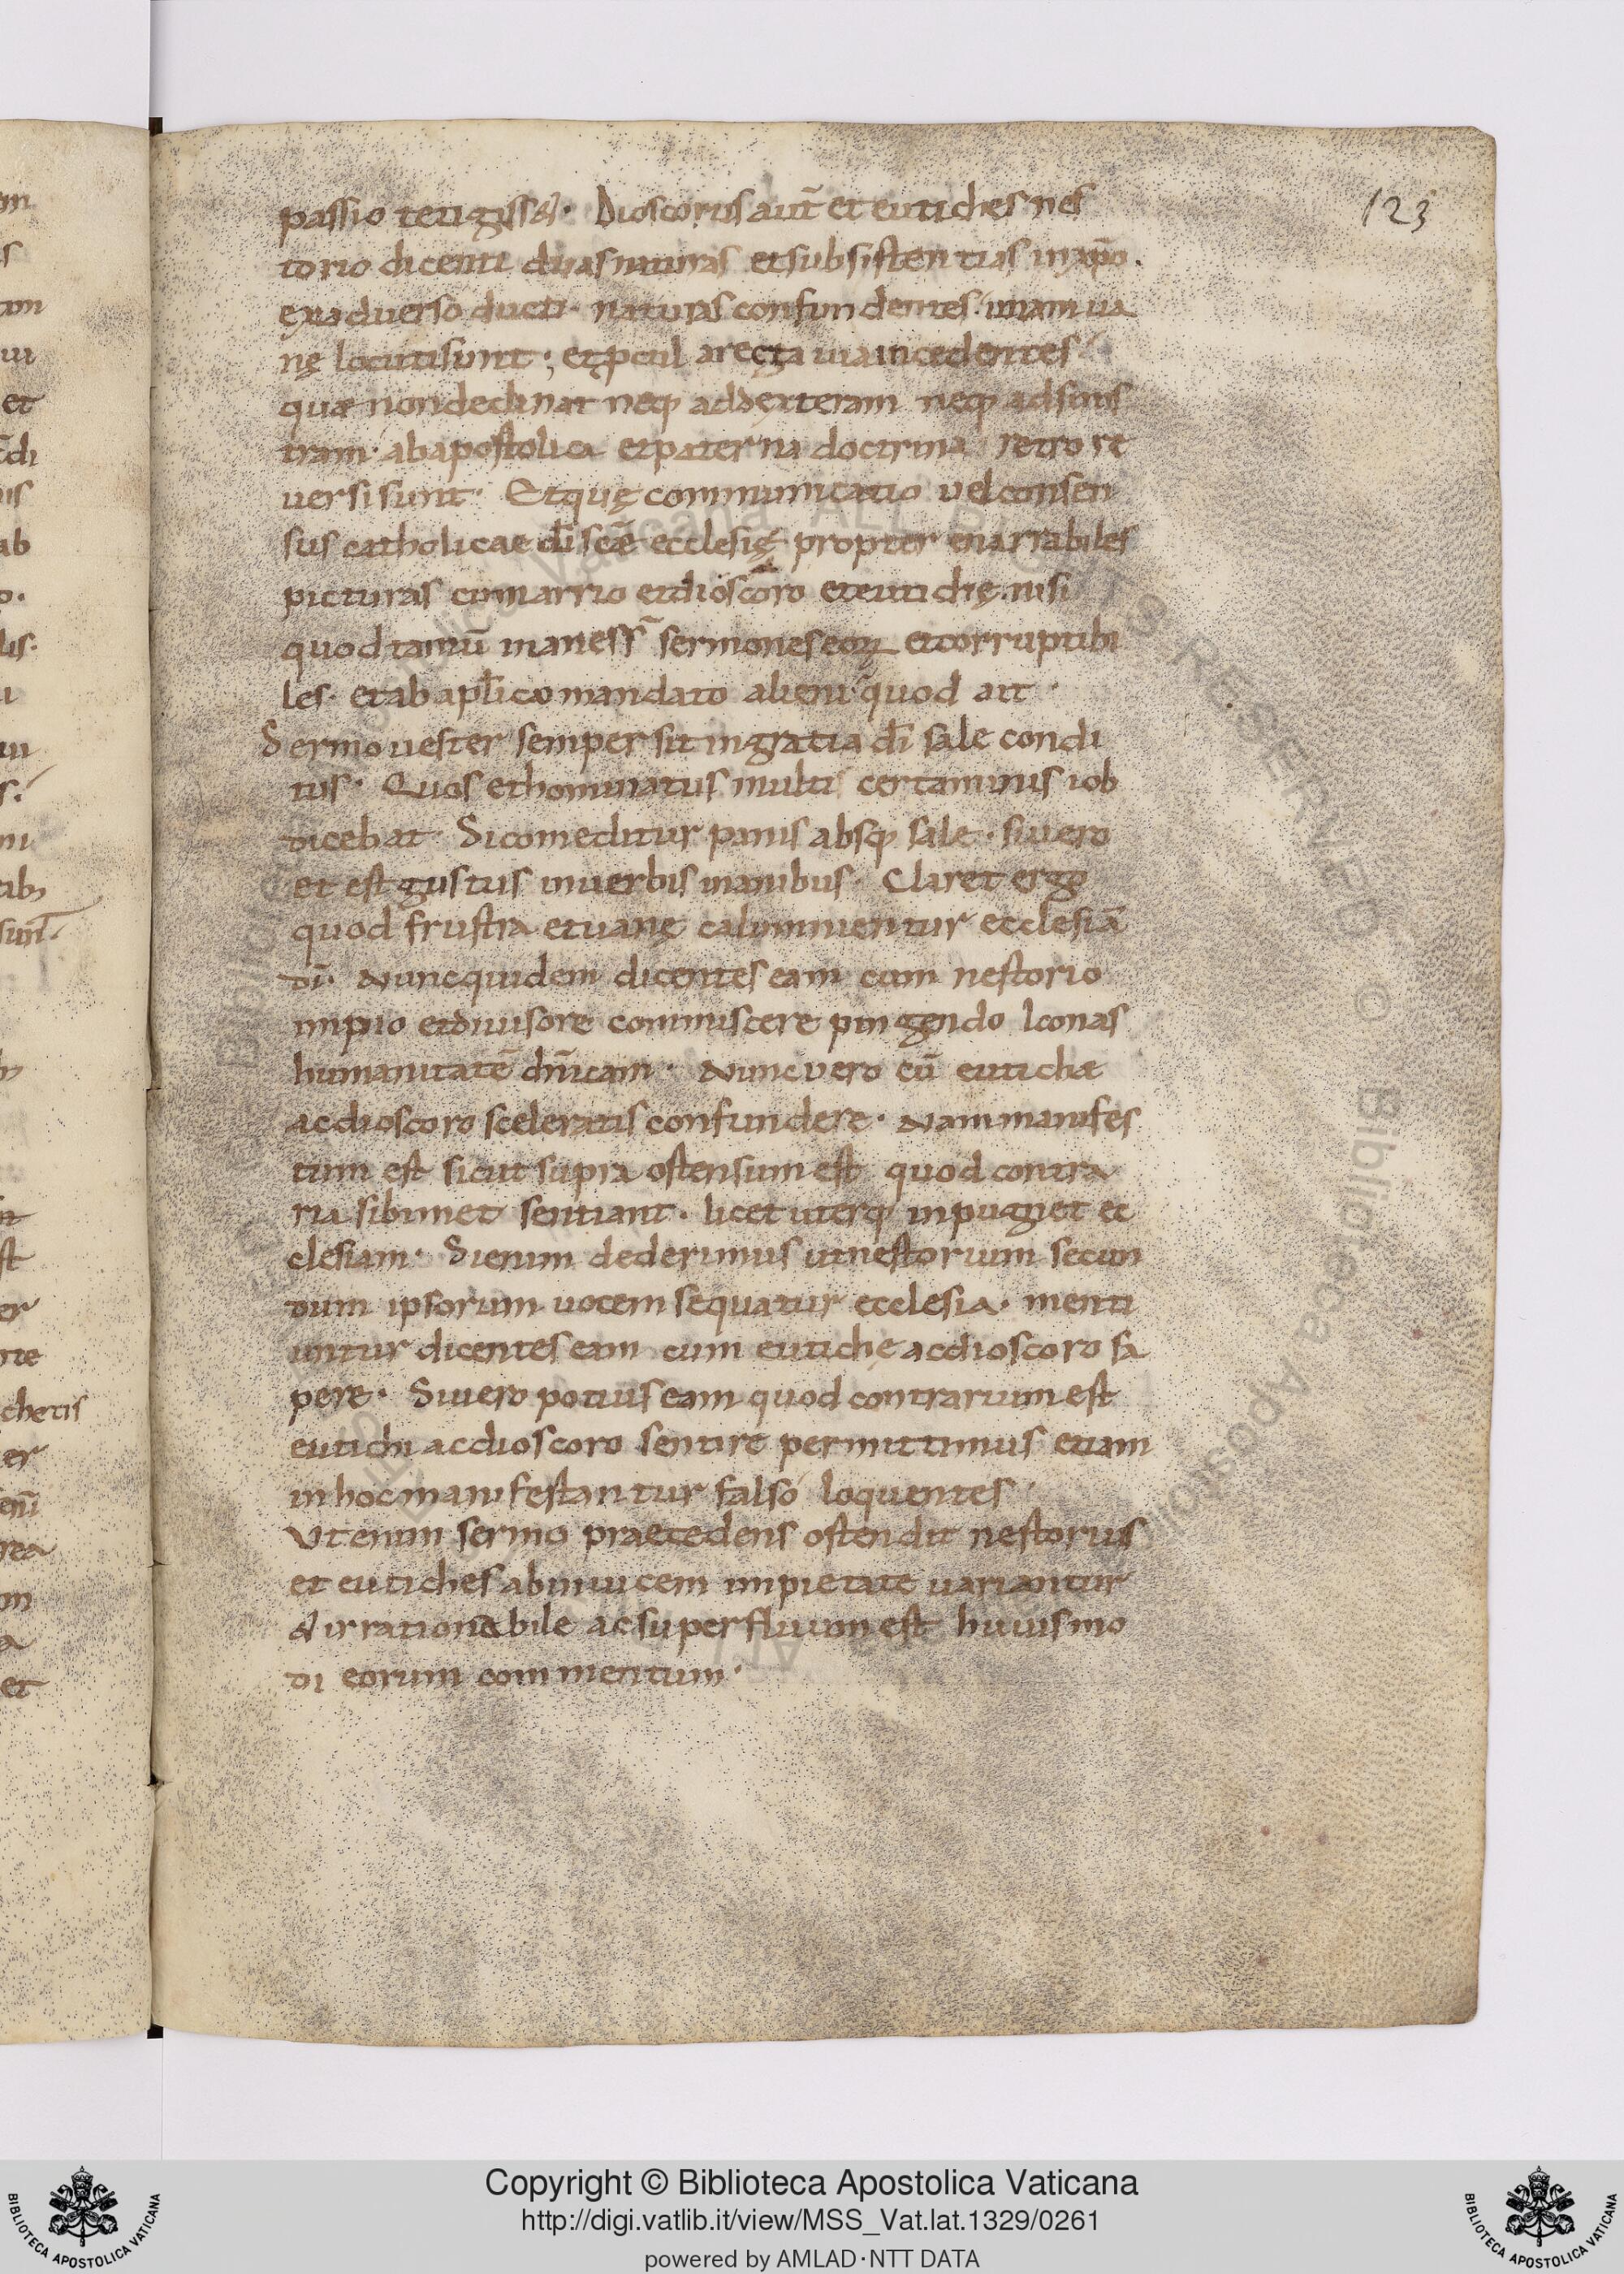 123
passio tetigisset. Dioscorus aut̄ et eutiches nes
torio dicenti duas naturas et subsistentias in xp̄o.
ex aduerso ducti. naturas confundentes. unam ua
nę locuti sunt; et ꝓcul a recta uia incedentes
quae non declinat neq; ad dexteram neq; ad sinis
tram. ab apostolica et paterna doctrina retro re
uersi sunt. Et quę communicatio vel consen
sus catholicae dī scae ecclesię propter enarrabiles
picturas cum arrio et dioscoro et eutichę. nisi
quod tantū inanes sermones eoꝝ et corruptibi
les. et ab apl̄ico mandato alieni quod ait
Sermo uester semper sit in gratia dī sale condi
tus. Quos et hominatus multis certaminis iob
dicebat Si comeditur panis absq; sale. si uero
et est gustus in uerbis inanibus. Claret ergo
quod frustra et uanę calumnientur ecclesiā
dī. Nunc quidem dicentes eam cum nestorio
impio et diuisore commiscere pingendo Iconas
humanitatē dn̄icam. Nunc vero cū eutichae
ac dioscoro sceleratis confundere. Nam manifes
tum est sicut supra ostensum est quod contra
ria sibimet sentiant. licet uterq; inpugnet ec
clesiam. Si enim dederimus ut nestorium secun
dum ipsorum uocem sequatur ecclesia. menti
untur dicentes eam cum eutiche ac dioscoro sa
pere. Si uero potius eam quod contrarium est
eutichi ac dioscoro sentire permittimus etiam
in hoc manifestantur falso loquentes
Ut enim sermo praecedens ostendit nestorius
et eutiches ab inuicem impietate uariantur
et irrationabile ac superfluum est huiusmo
di eorum commentum.
Copyright © Biblioteca Apostolica Vaticana
http://digi.vatlib.it/view/MSS_Vat.lat.1329/0261
powered by AMLAD·NTT DATA
BIBLIOTECA APOSTOLICA VATICANA
BIBLIOTECA APOSTOLICA VATICANA